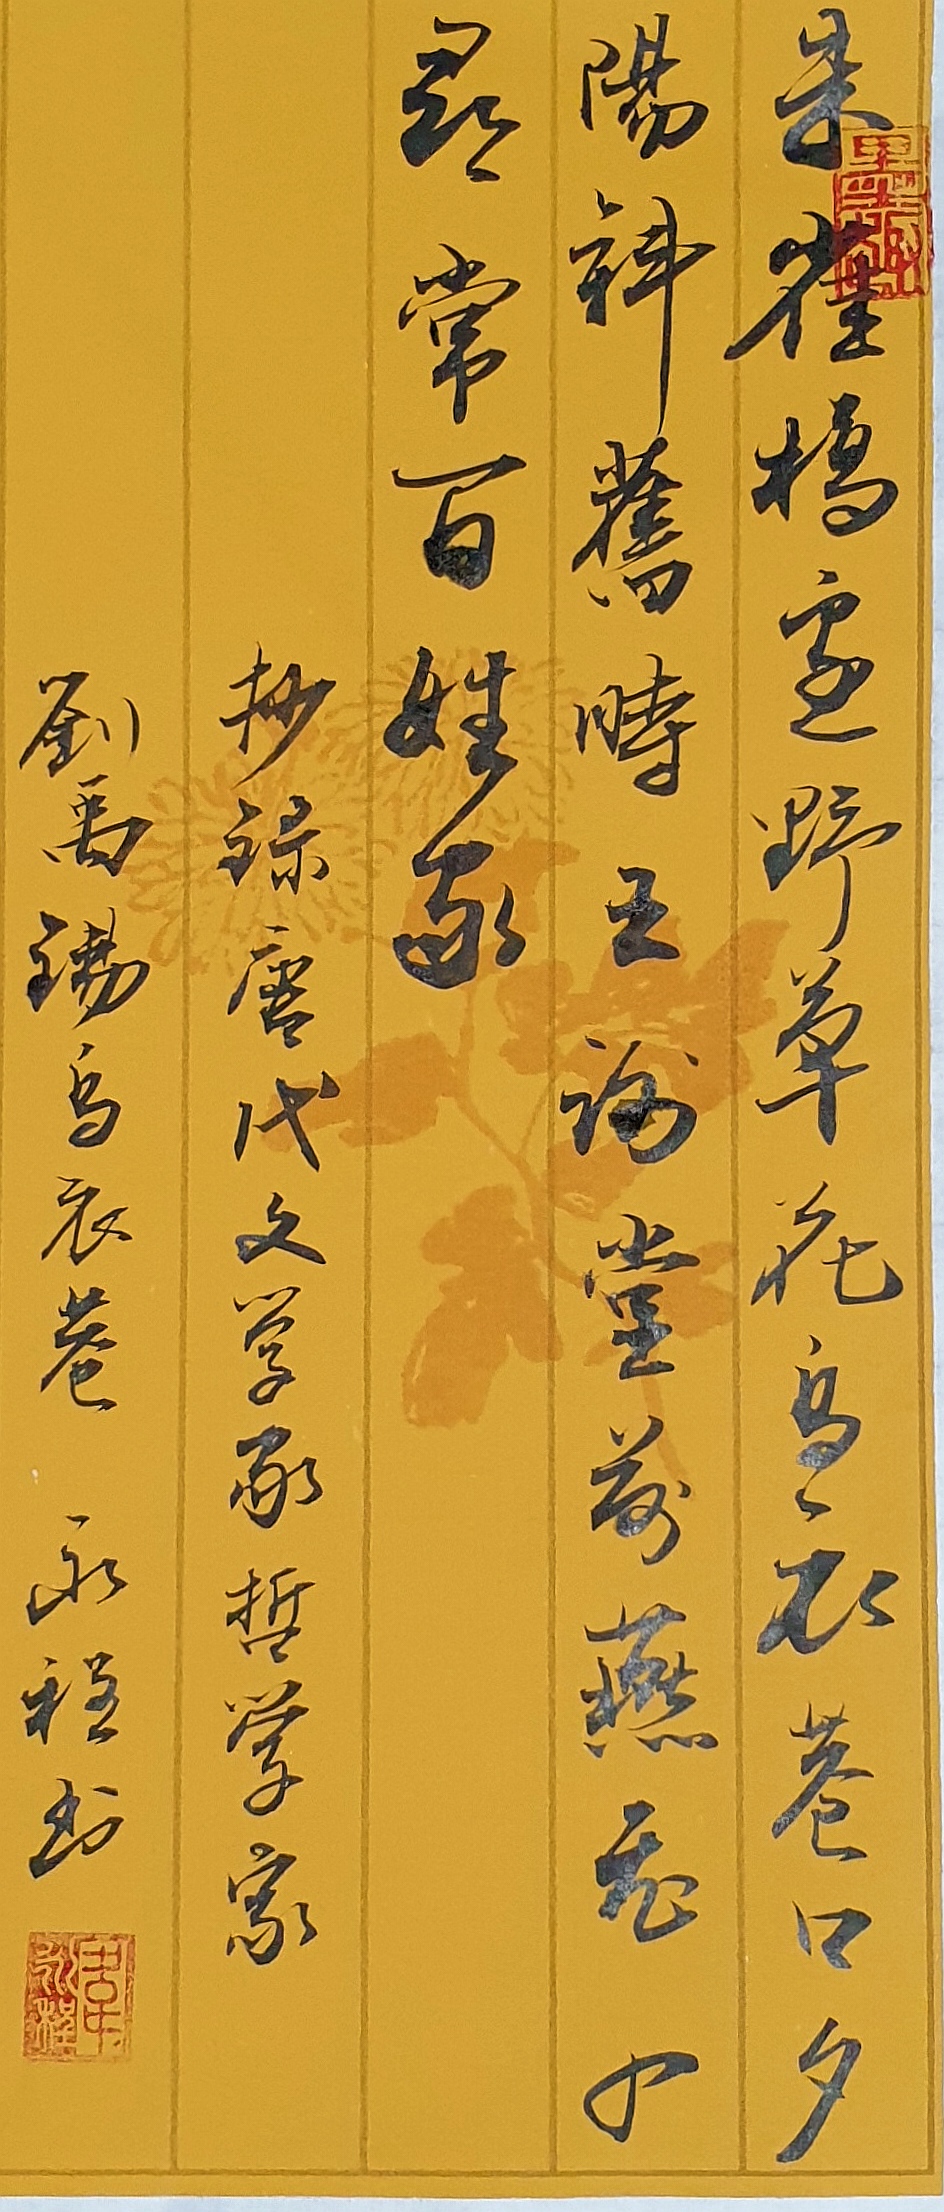 朱雀橋邊野草花烏衣巷口夕
陽斜舊時王謝堂前燕飛入
尋常百姓家
抄錄唐代文学家哲学家
劉禹錫烏衣巷 永程书